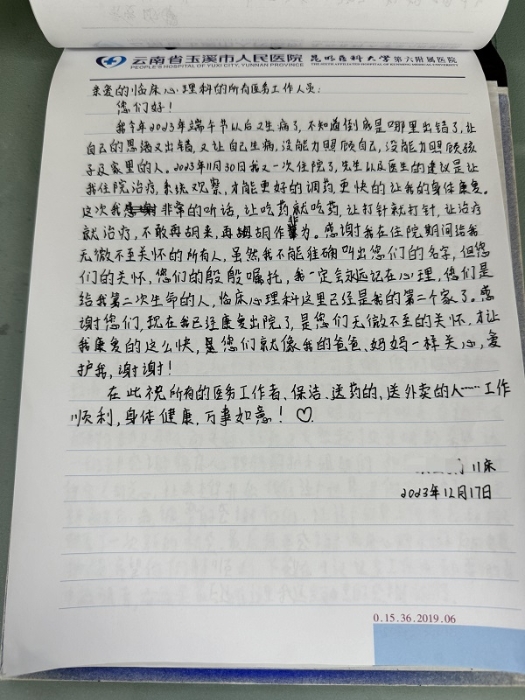 云南省玉溪市人民医院 昆明医科大学第六附属医院
PEOPLE'S HOSPITAL OF YUXI CITY, YUNNAN PROVINCE
亲爱的临床心理科的所有医务工作人员:
您们好!
我今年2023年端午节以后又生病了,不知道倒底是哪里出错了,让
自己的思想又出错,又让自己生病,没能力照顾自己,没能力照顾孩
子及家里的人。2023年11月30日我又一次住院了,先生以及医生的建议是让
我住院治疗,系统观察,才能更好的调药更快的让我的身体康复。
这次我非常的听话,让吃药就吃药,让打针就打针,让治疗
就治疗,不敢再胡来,再胡作非为。感谢我在住院期间给我
无微不至关怀的所有人,虽然我不能准确叫出您们的名字,但您
们的关怀,您们的殷殷嘱托,我一定会永远记在心理,您们是
给我第二次生命的人,临床心理科这里已经是我的第二个家了。感
谢您们,现在我已经康复出院了,是您们无微不至的关怀,才让
我康复的这么快,是您们就像我的爸爸、妈妈一样关心,爱
护我,谢谢!
在此祝所有的医务工作者、保洁、送药的、送外卖的人……工作
顺利,身体健康,万事如意!♡
2023年12月17日
0.15.36.2019.06